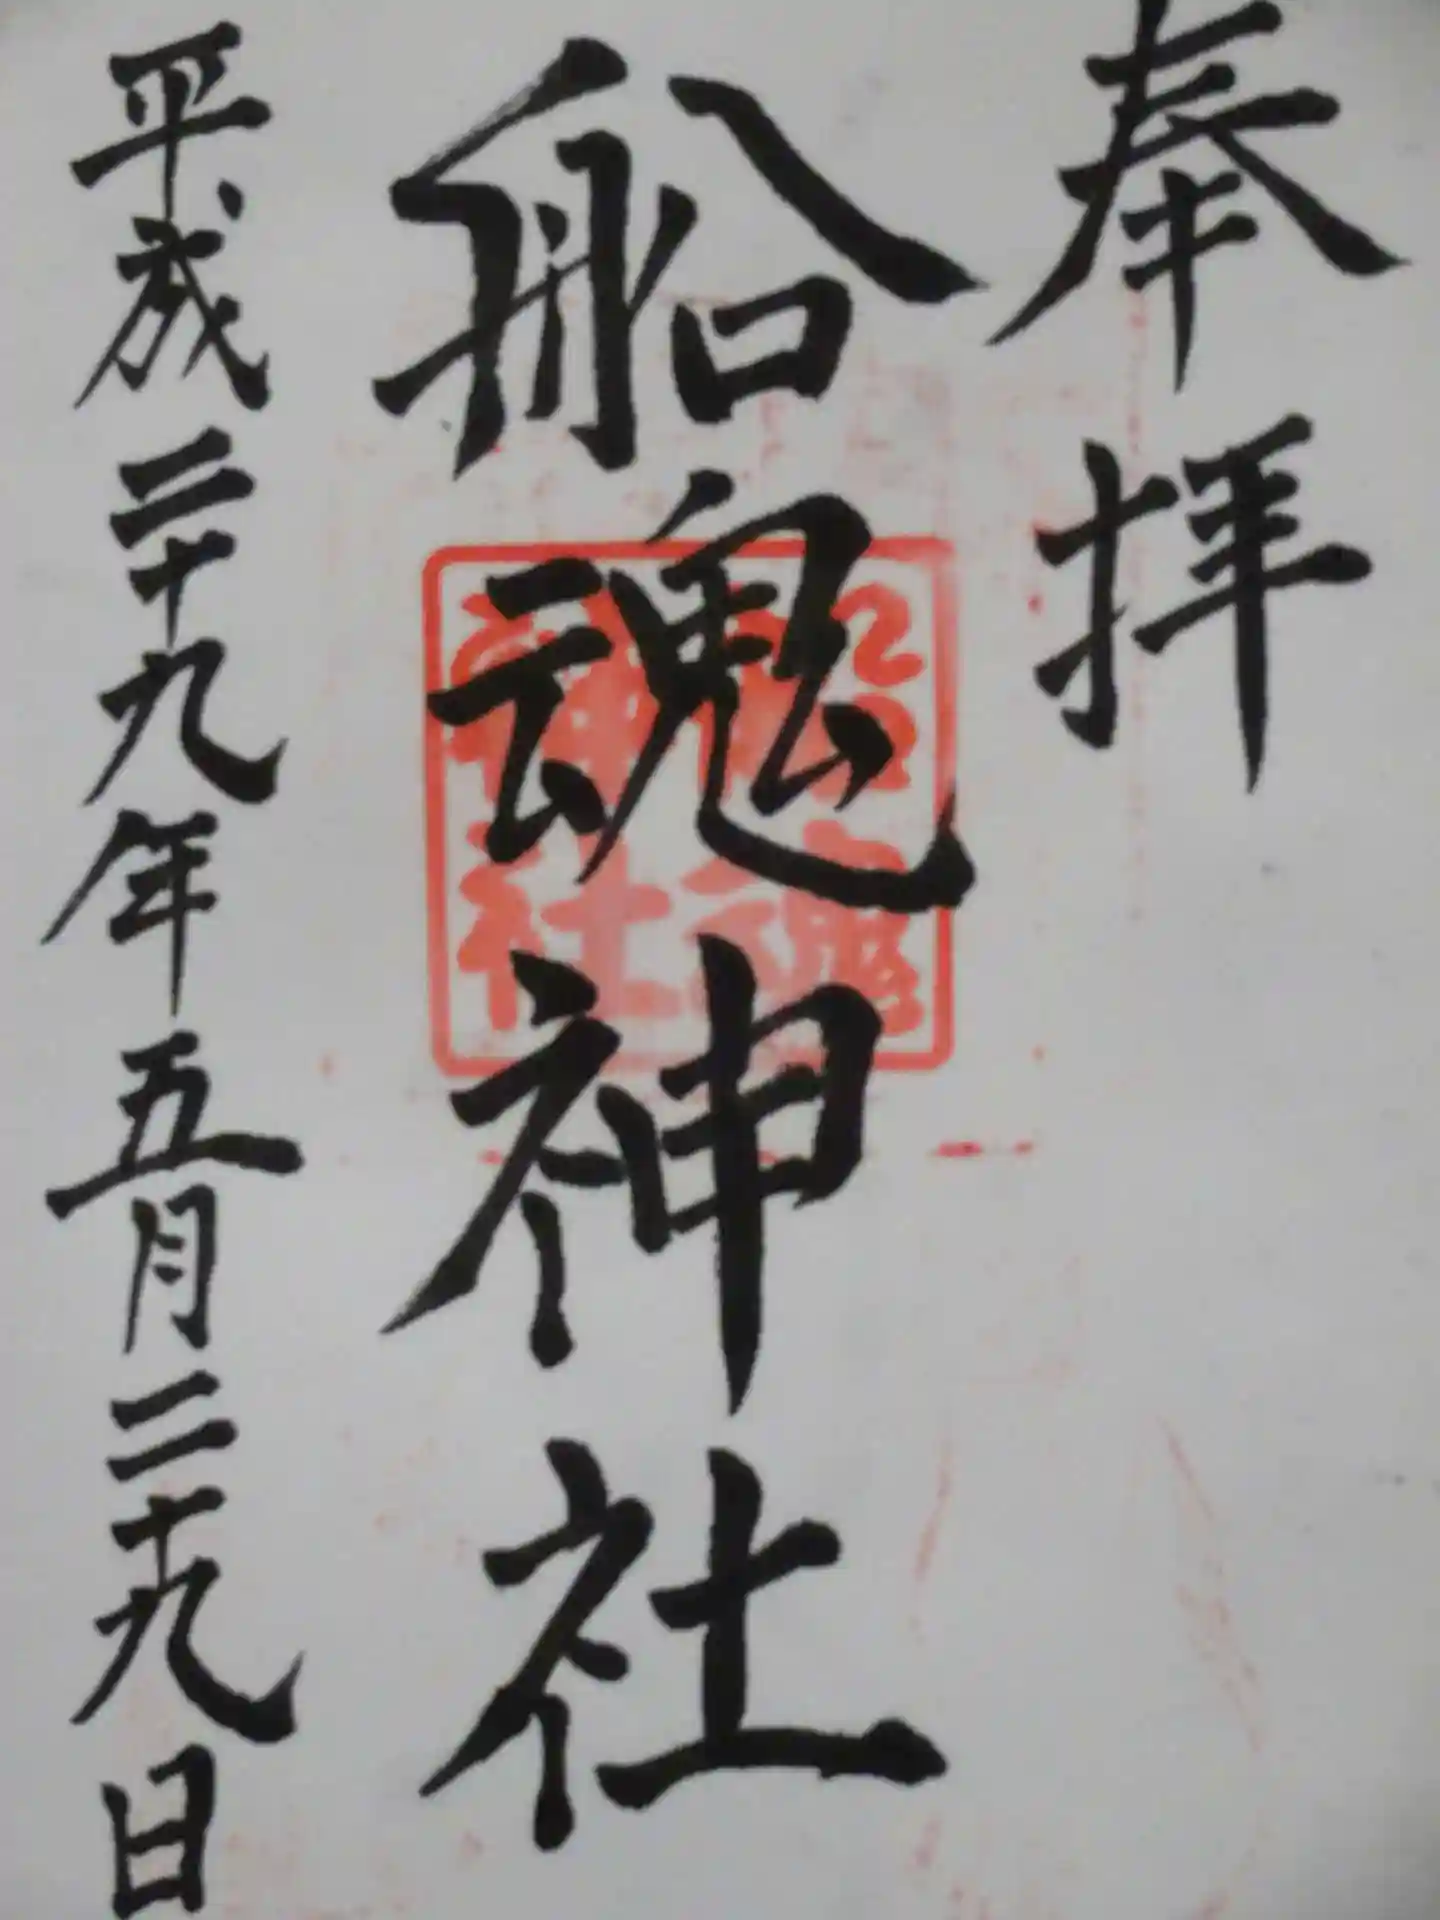 奉拝
船魂神社
船魂
神社
平成二十九年五月二十九日